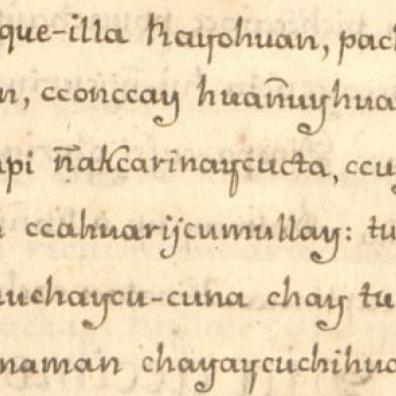 que-illa Kayohuan, pac
n, cconccay huañuyhua
pi ñakcarinaycucta, ccu
ccahuarijcumullay: tu
uchaycu-cuna chay tu
naman chayaycuchihua